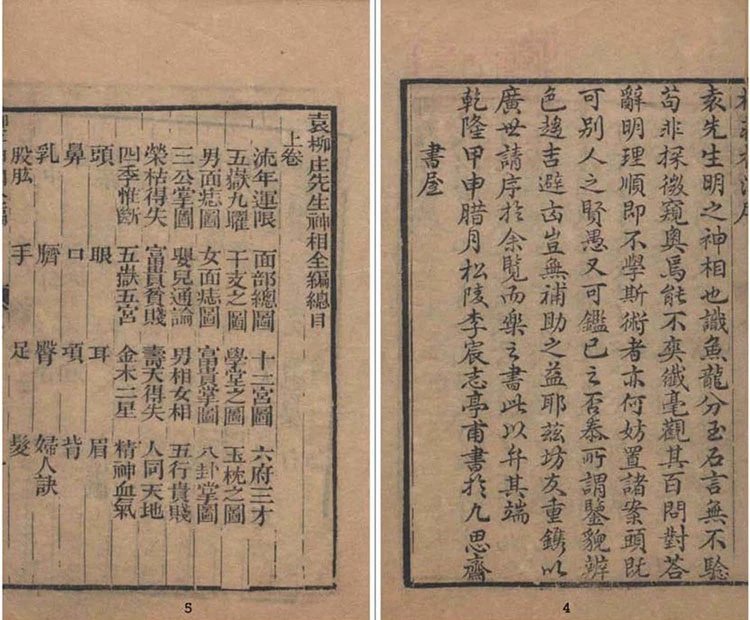 袁先生明之神相也識魚龍分玉石言無不驗
苟非探微窺奧焉能不爽纖毫觀其百問對答
辭明理順即不學斯術者亦何妨置諸案頭既
可別人之賢愚又可鑑已之否泰所謂鑒貌辨
色趨吉避凶豈無補助之益耶茲坊友重鐫以
廣世請序於余覽而樂之書此以弁其端
乾隆甲申腊月松陵李宸志亭甫書於九思齋
書屋
4
袁柳庄先生神相全編總目
上卷
流年運限 面部總圖 十二宮圖 六府三才
五嶽九曜 干支之圖 學堂之圖 玉枕之圖
男面痣圖 女面痣圖 富貴掌圖 八卦掌圖
三公掌圖 嬰兒通論 男相女相 五行貴賤
榮枯得失 富貴貧賤 壽夭得失 人同天地
四季推斷 五嶽五宮 金木二星 精神血氣
頭 眼 耳 眉
鼻 口 項 背
乳 臍 臀 婦人訣
股肱 手 足 髮
5